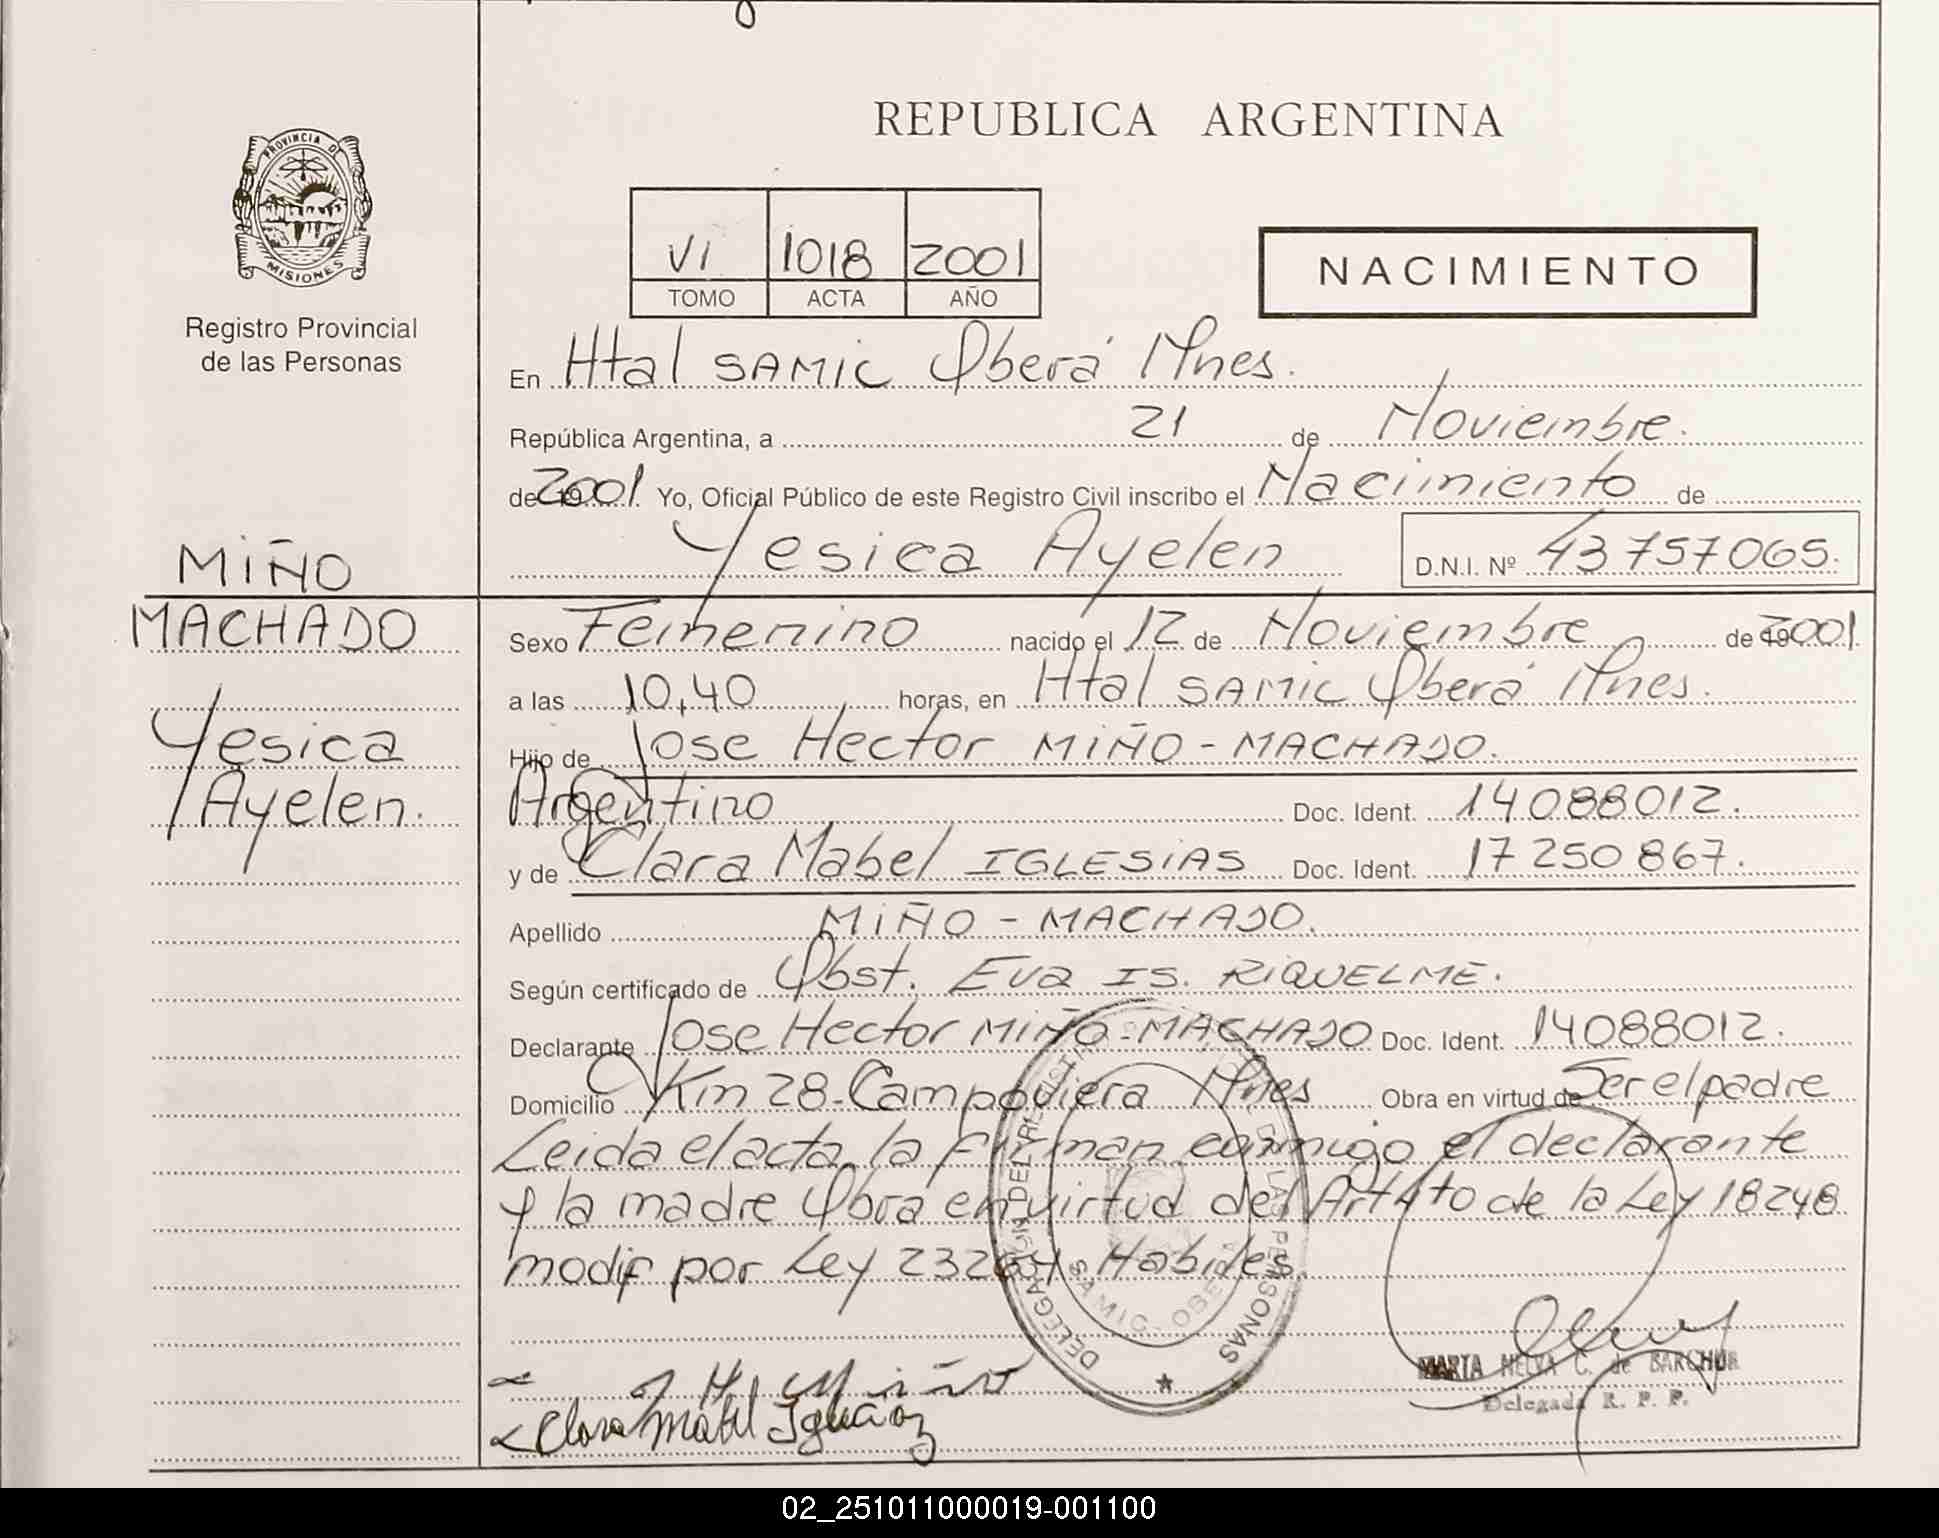 REPUBLICA ARGENTINA
PROVINCIA D
MISIONES
Registro Provincial
de las Personas
VI 1018 2001
TOMO ACTA AÑO
NACIMIENTO
En Htal SAMIC Oberá Mnes.
República Argentina, a 21 de Noviembre.
de 2001. Yo, Oficial Público de este Registro Civil inscribo el Nacimiento de
Yesica Ayelen D.N.I. Nº 43757065.
MIÑO
MACHADO
Yesica
Ayelen.
Sexo Femenino nacido el 12 de Noviembre de 2001.
a las 10,40 horas, en Htal SAMIC Oberá Mnes.
Hijo de Jose Hector MIÑO-MACHADO.
Argentino Doc. Ident. 14088012.
y de Clara Mabel IGLESIAS Doc. Ident. 17250867.
Apellido MIÑO-MACHADO.
Según certificado de Obst. Eva IS. RIQUELME.
Declarante Jose Hector MIÑO-MACHADO Doc. Ident. 14088012.
Domicilio Km 28-Campoviera Mnes Obra en virtud de Ser el padre
Leida el acta, la firman conmigo el declarante
y la madre Obra en virtud del Art 4to de la Ley 18248
modif por Ley 23264 Habiles.
DELEGACION DEL REGISTRO DE LAS PERSONAS
SAMIC - OBERA
J H Miño
Clara Mabel Iglesias
MARTA NELVA C. de BARCHUR
Delegada R. P. P.
02_251011000019-001100